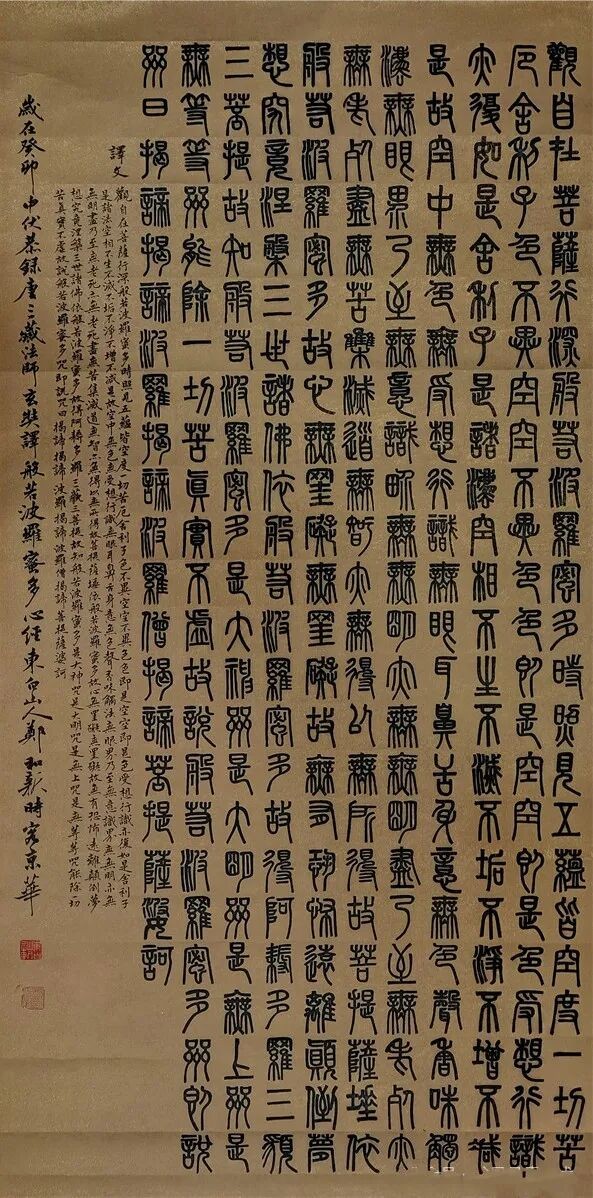 觀自在菩薩行深般若波羅蜜多時照見五蘊皆空度一切苦
厄舍利子色不異空空不異色色即是空空即是色受想行識
亦復如是舍利子是諸法空相不生不滅不垢不淨不增不減
是故空中無色無受想行識無眼耳鼻舌身意無色聲香味觸
法無眼界乃至無意識界無無明亦無無明盡乃至無老死亦
無老死盡無苦集滅道無智亦無得以無所得故菩提薩埵依
般若波羅蜜多故心無罣礙無罣礙故無有恐怖遠離顛倒夢
想究竟涅槃三世諸佛依般若波羅蜜多故得阿耨多羅三藐
三菩提故知般若波羅蜜多是大神咒是大明咒是無上咒是
無等等咒能除一切苦真實不虛故說般若波羅蜜多咒即說
咒曰揭諦揭諦波羅揭諦波羅僧揭諦菩提薩婆訶
譯文
觀自在菩薩行深般若波羅蜜多時照見五蘊皆空度一切苦厄舍利子色不異空空不異色色即是空空即是色受想行識亦復如是舍利子
是諸法空相不生不滅不垢不淨不增不減是故空中無色無受想行識無眼耳鼻舌身意無色聲香味觸法無眼界乃至無意識界無無明亦無
無明盡乃至無老死亦無老死盡無苦集滅道無智亦無得以無所得故菩提薩埵依般若波羅蜜多故心無罣礙無罣礙故無有恐怖遠離顛倒夢
想究竟涅槃三世諸佛依般若波羅蜜多故得阿耨多羅三藐三菩提故知般若波羅蜜多是大神咒是大明咒是無上咒是無等等咒能除一切
苦真實不虛故說般若波羅蜜多咒即說咒曰揭諦揭諦波羅揭諦波羅僧揭諦菩提薩婆訶
歲在癸卯中伏恭錄唐三藏法師玄奘譯般若波羅蜜多心經東白山人鄭和時客京華